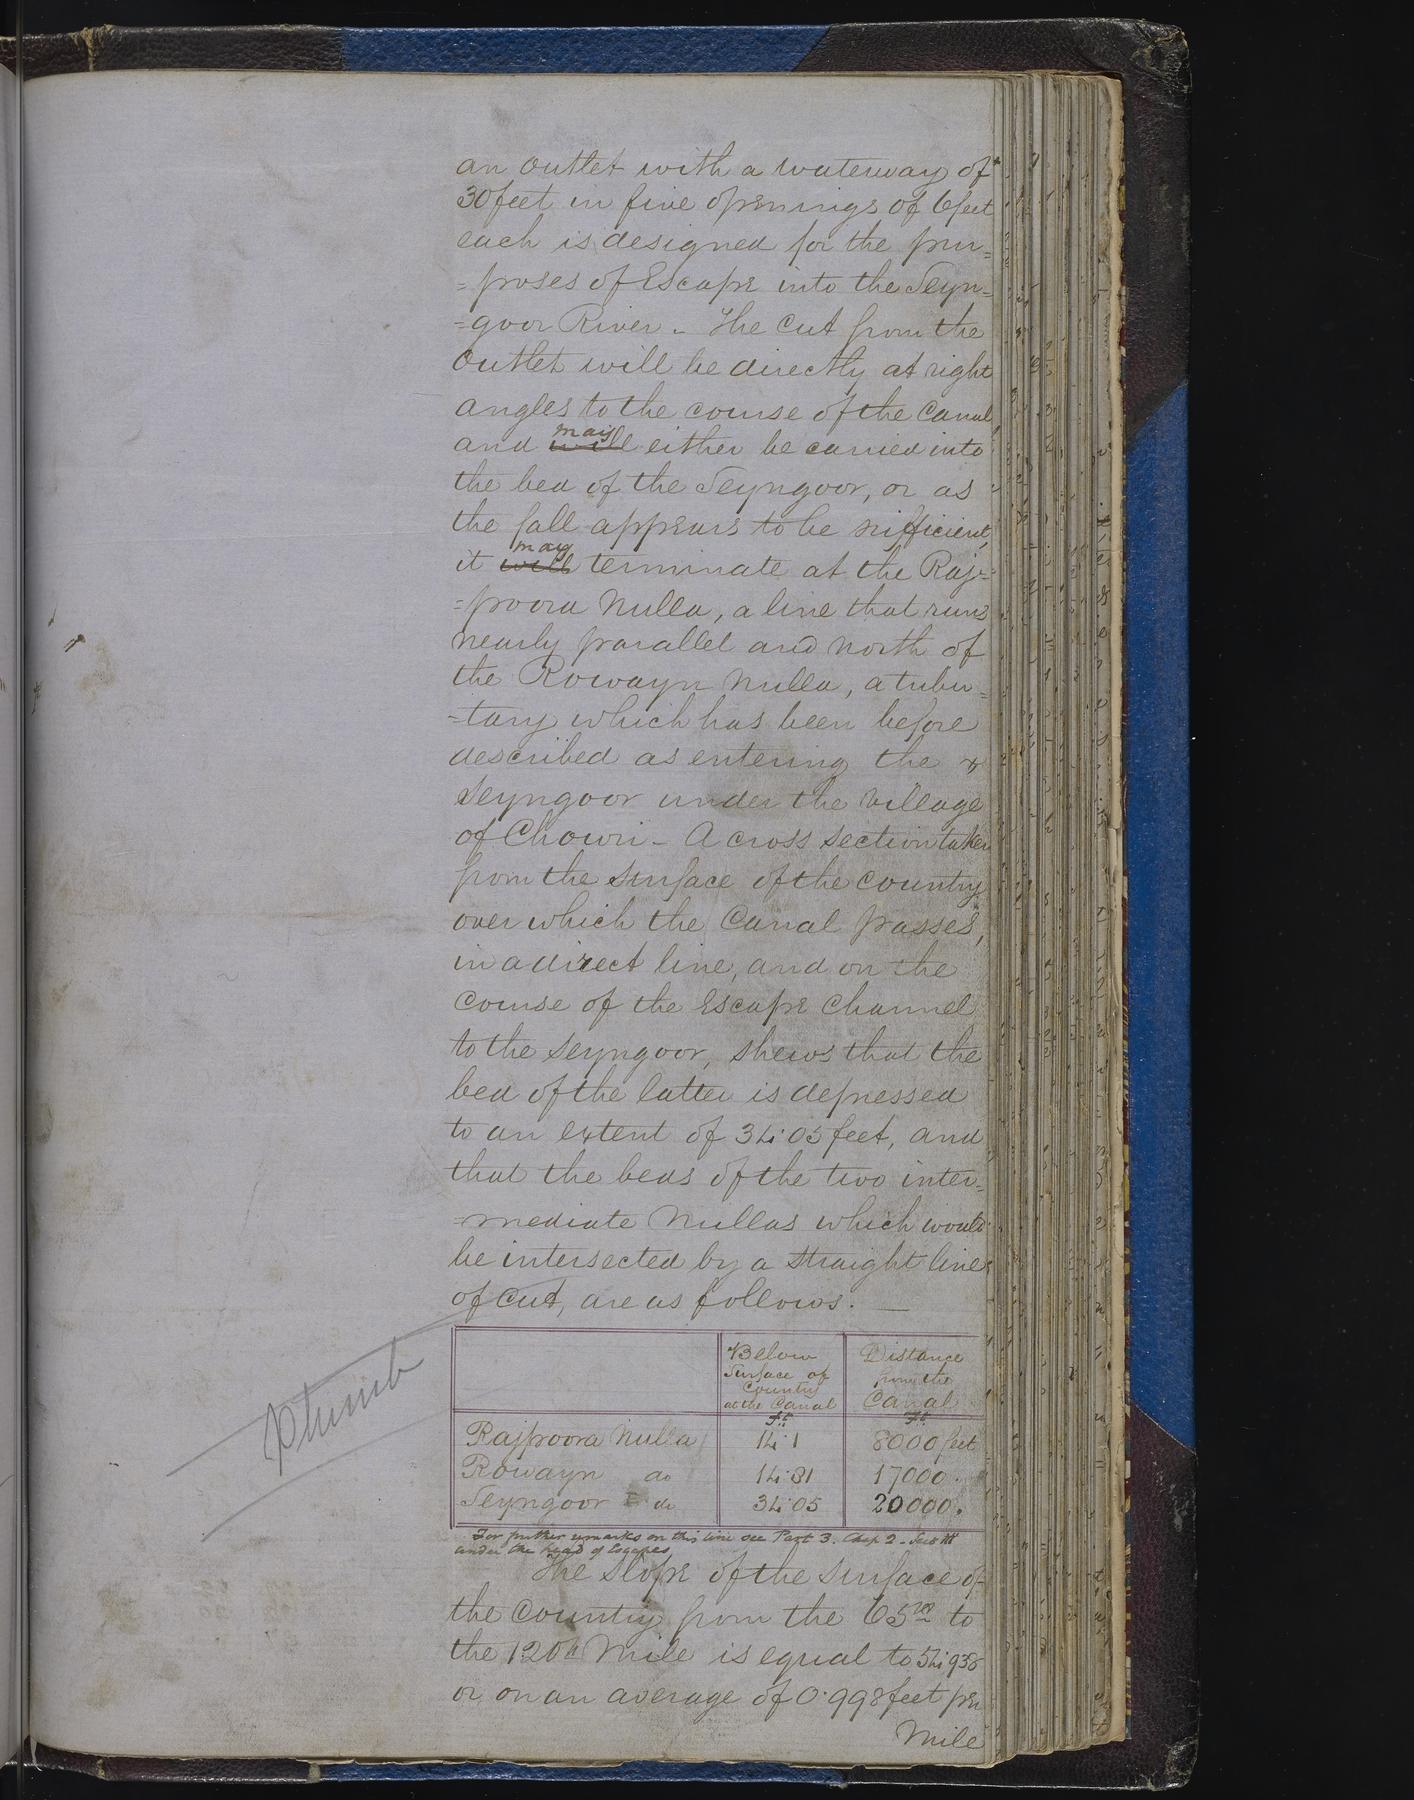 an outlet with a waterway of
30 feet in five openings of 6 feet
each is designed for the pur=
=poses of Escape into the Seyn=
=goor River - The Cut from the
Outlet will be directly at right
angles to the course of the Canal
may
and will either be carried into
the bed of the Seyngoor, or as
the fall appears to be sufficient,
may
it will terminate at the Raj=
=poora Nulla, a line that runs
nearly parallel and north of
the Rowayn Nulla, a tribu=
=tary which has been before
described as entering the
Seyngoor under the village
of Chowri - A cross section taken
from the surface of the country
over which the Canal passes,
in a direct line, and on the
course of the Escape channel
to the Seyngoor, shews that the
bed of the latter is depressed
to an extent of 34.05 feet, and
that the beds of the two inter=
=mediate Nullas which would
be intersected by a straight line
of cut, are as follows. —
Below Distance
Surface of from the
Country Canal
at the Canal
ft ft
Rajpoora Nulla 14.1 8000 feet
Rowayn do 14.81 17000.
Seyngoor do 34.05 20000.
For further remarks on this line see Part 3. Chap 2 - Sec III
under the head of Escapes
The slope of the surface of
the Country from the 65th to
the 120th Mile is equal to 54.938
or on an average of 0.998 feet per
Mile